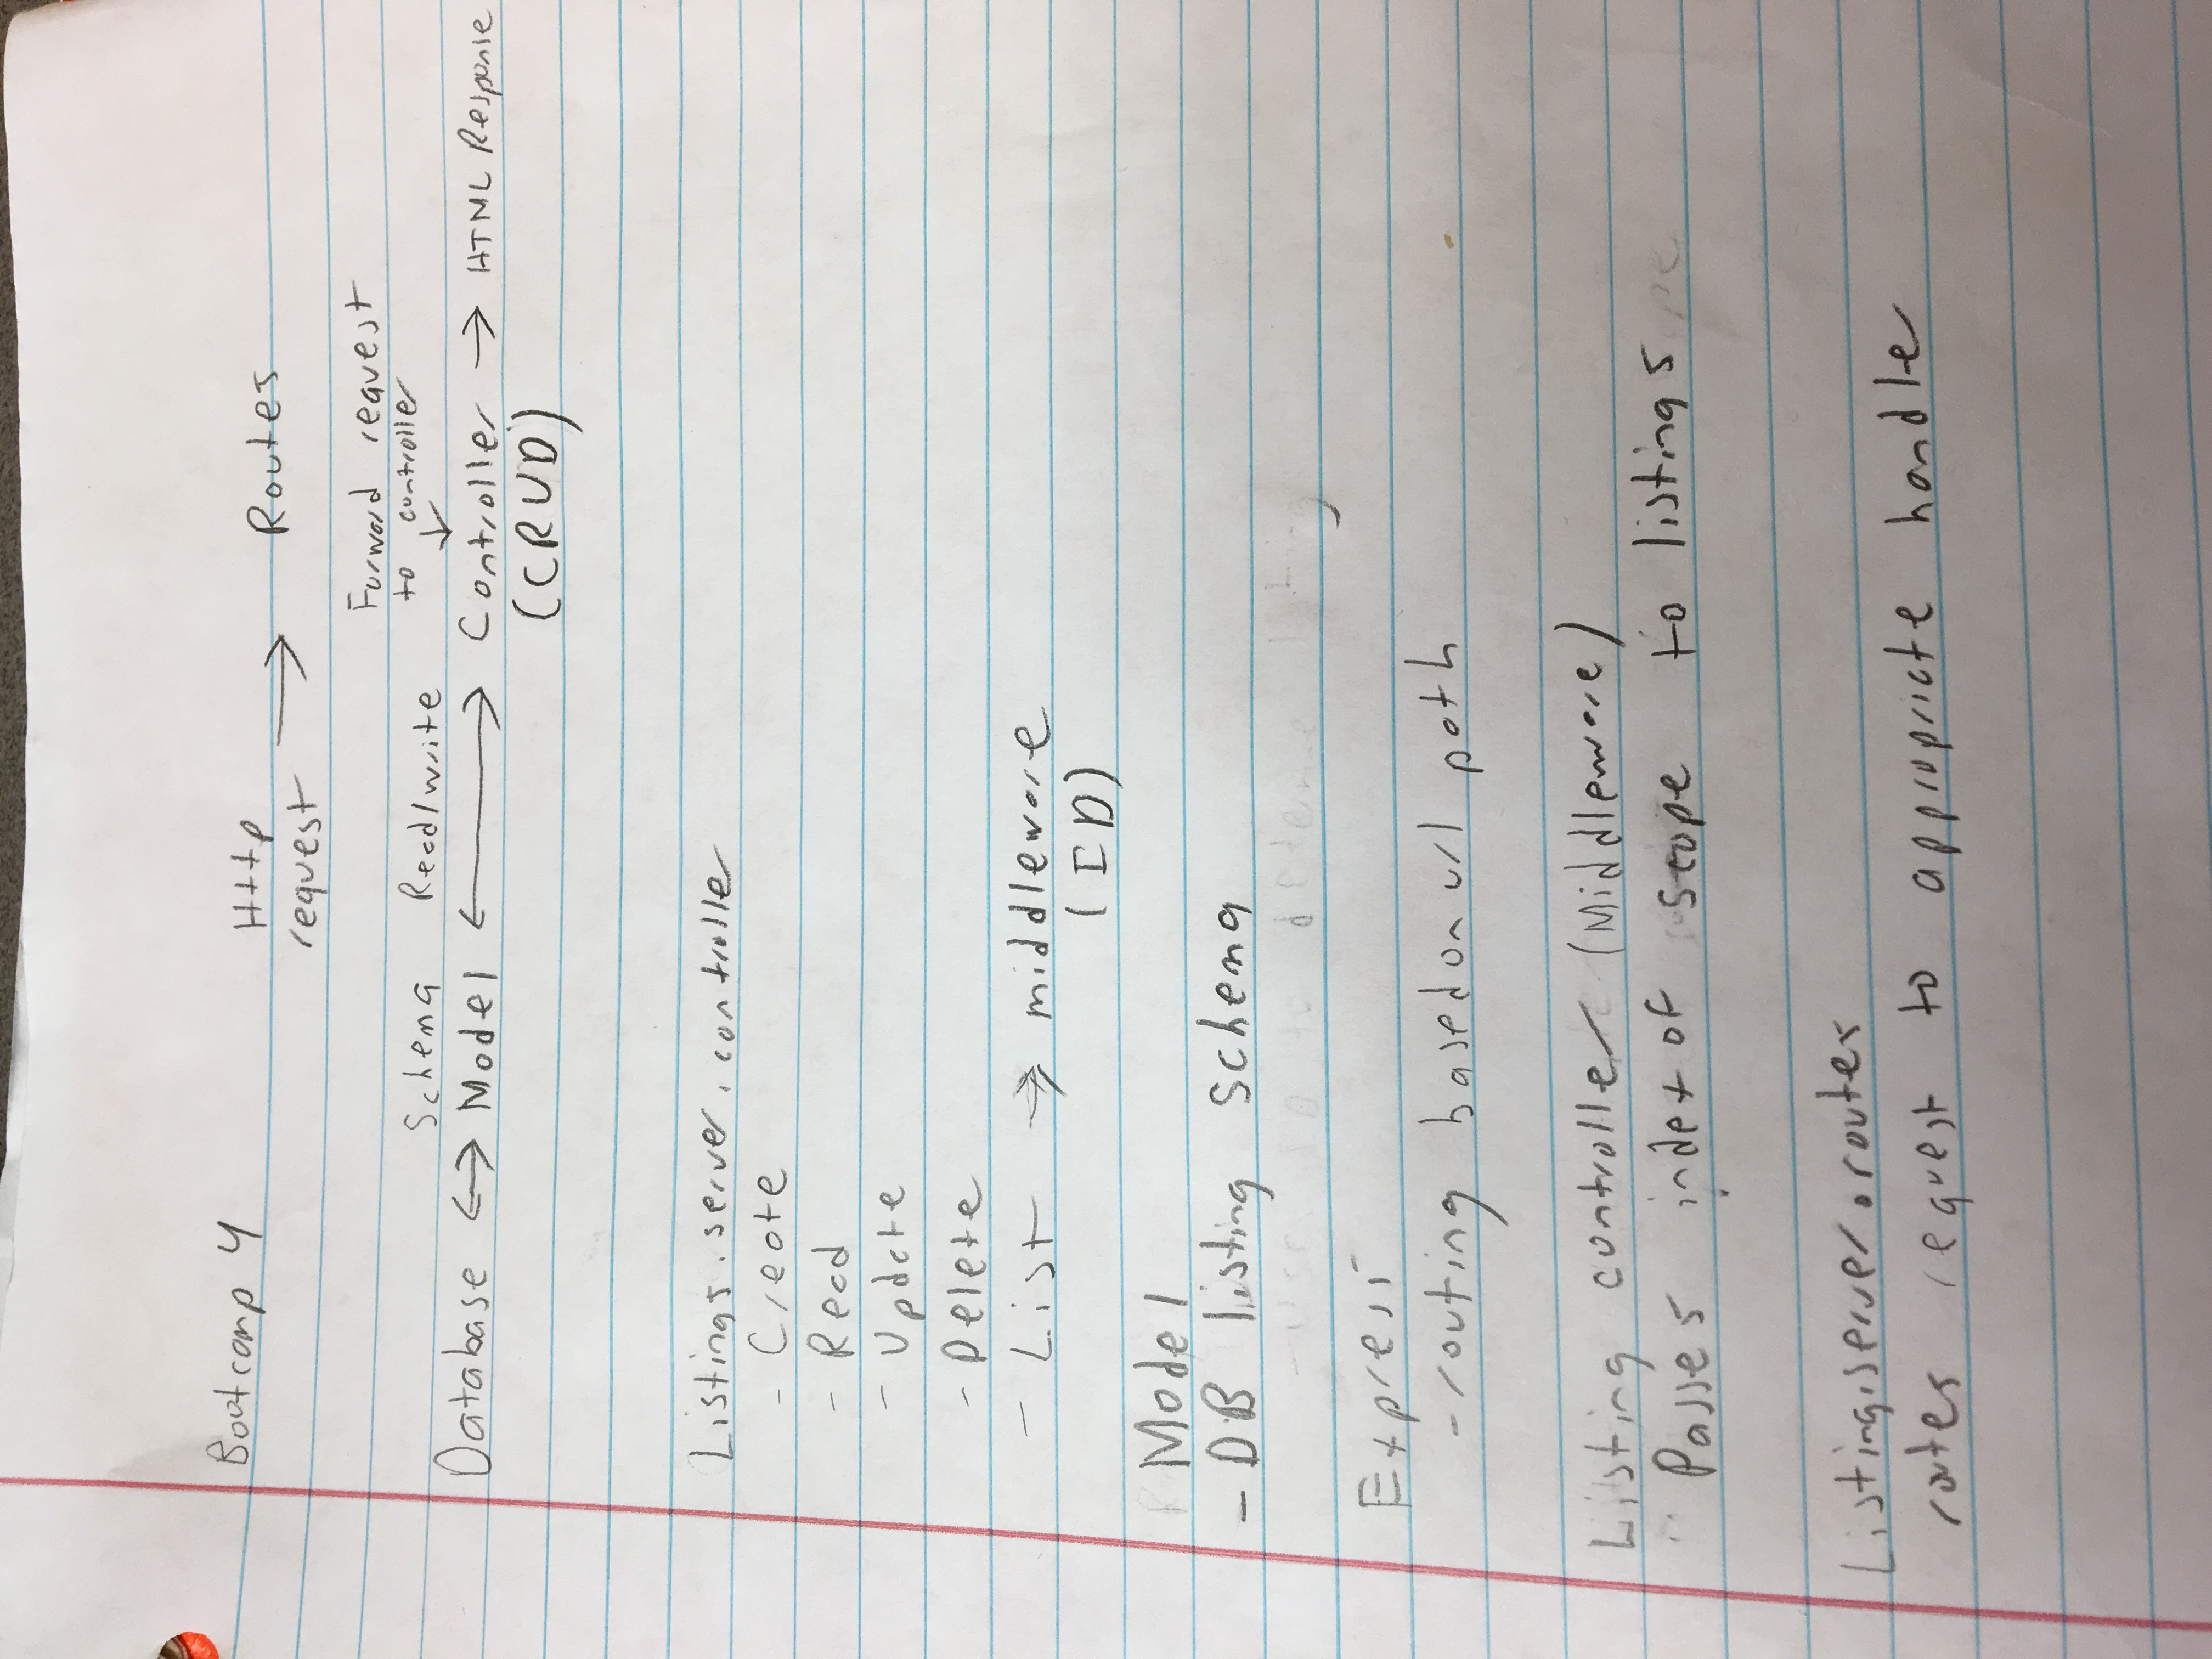 Bootcamp 4
Http
request → Routes
Forward request
to controller
↓
Schema Read/write
Database ↔ Model ↔ Controller → HTML Response
(CRUD)
Listings.server.controller
- Create
- Read
- Update
- Delete
- List → middleware
(ID)
Model
- DB listing schema
Express
- routing based on url path
Listing controller (Middleware)
Passes index of scope to listings
Listing.server.routes
routes request to appropriate handler